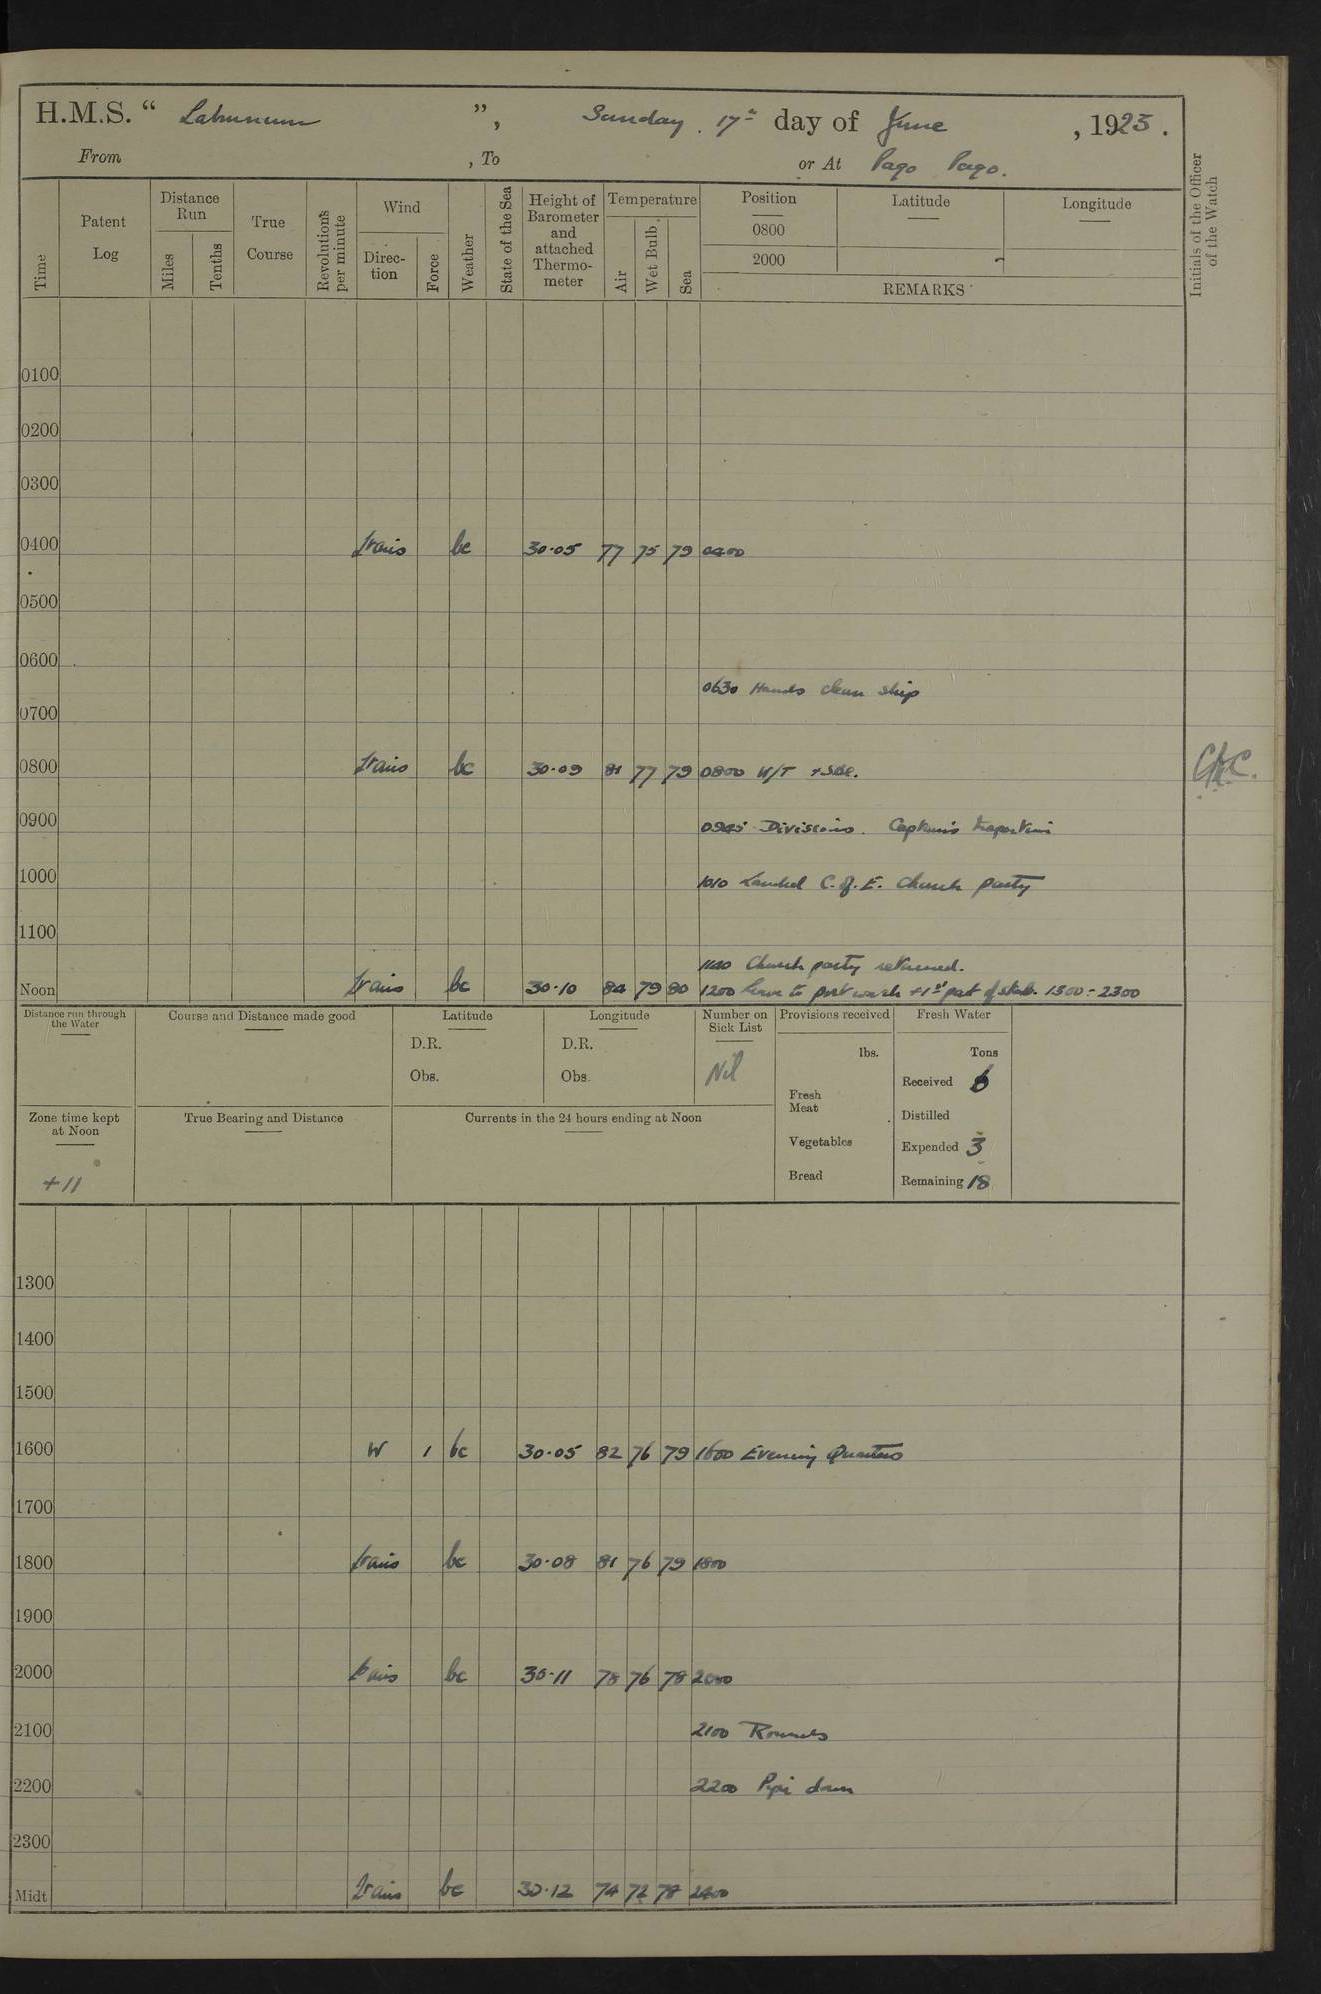 H.M.S. “ Laburnum ”, Sunday 17th day of June, 1923.
From , To or At Pago Pago.
Time
Patent Log
Distance Run
Miles
Tenths
True Course
Revolutions per minute
Wind
Direction
Force
Weather
State of the Sea
Height of Barometer and attached Thermometer
Temperature
Air
Wet Bulb
Sea
Position
0800
2000
Latitude
Longitude
REMARKS
Initials of the Officer of the Watch
0100
0200
0300
0400 bc 30·05 77 75 79 0400
0500
0600
0630 Hands clean ship
0700
0800 bc 30·09 81 77 79 0800 H/T
0900
0945 Divisions. Captain's
1000
1010 Landed C. of E. Church party
1100
1140 Church party returned.
Noon bc 30·10 84 79 80 1200 Leave to port watch + 1st part of stab. 1300 - 2300
Distance run through the Water
Course and Distance made good
Latitude
D.R.
Obs.
Longitude
D.R.
Obs.
Number on Sick List
Nil
Provisions received
lbs.
Fresh Meat
Vegetables
Bread
Fresh Water
Tons
Received 6
Distilled
Expended 3
Remaining 18
Zone time kept at Noon
+11
True Bearing and Distance
Currents in the 24 hours ending at Noon
1300
1400
1500
1600 W 1 bc 30·05 82 76 79 1600 Evening Quarters
1700
1800 bc 30·08 81 76 79 1800
1900
2000 bc 30·11 78 76 78 2000
2100
2100 Rounds
2200
2200 Pipe down
2300
Midt bc 30·12 74 72 78 2400